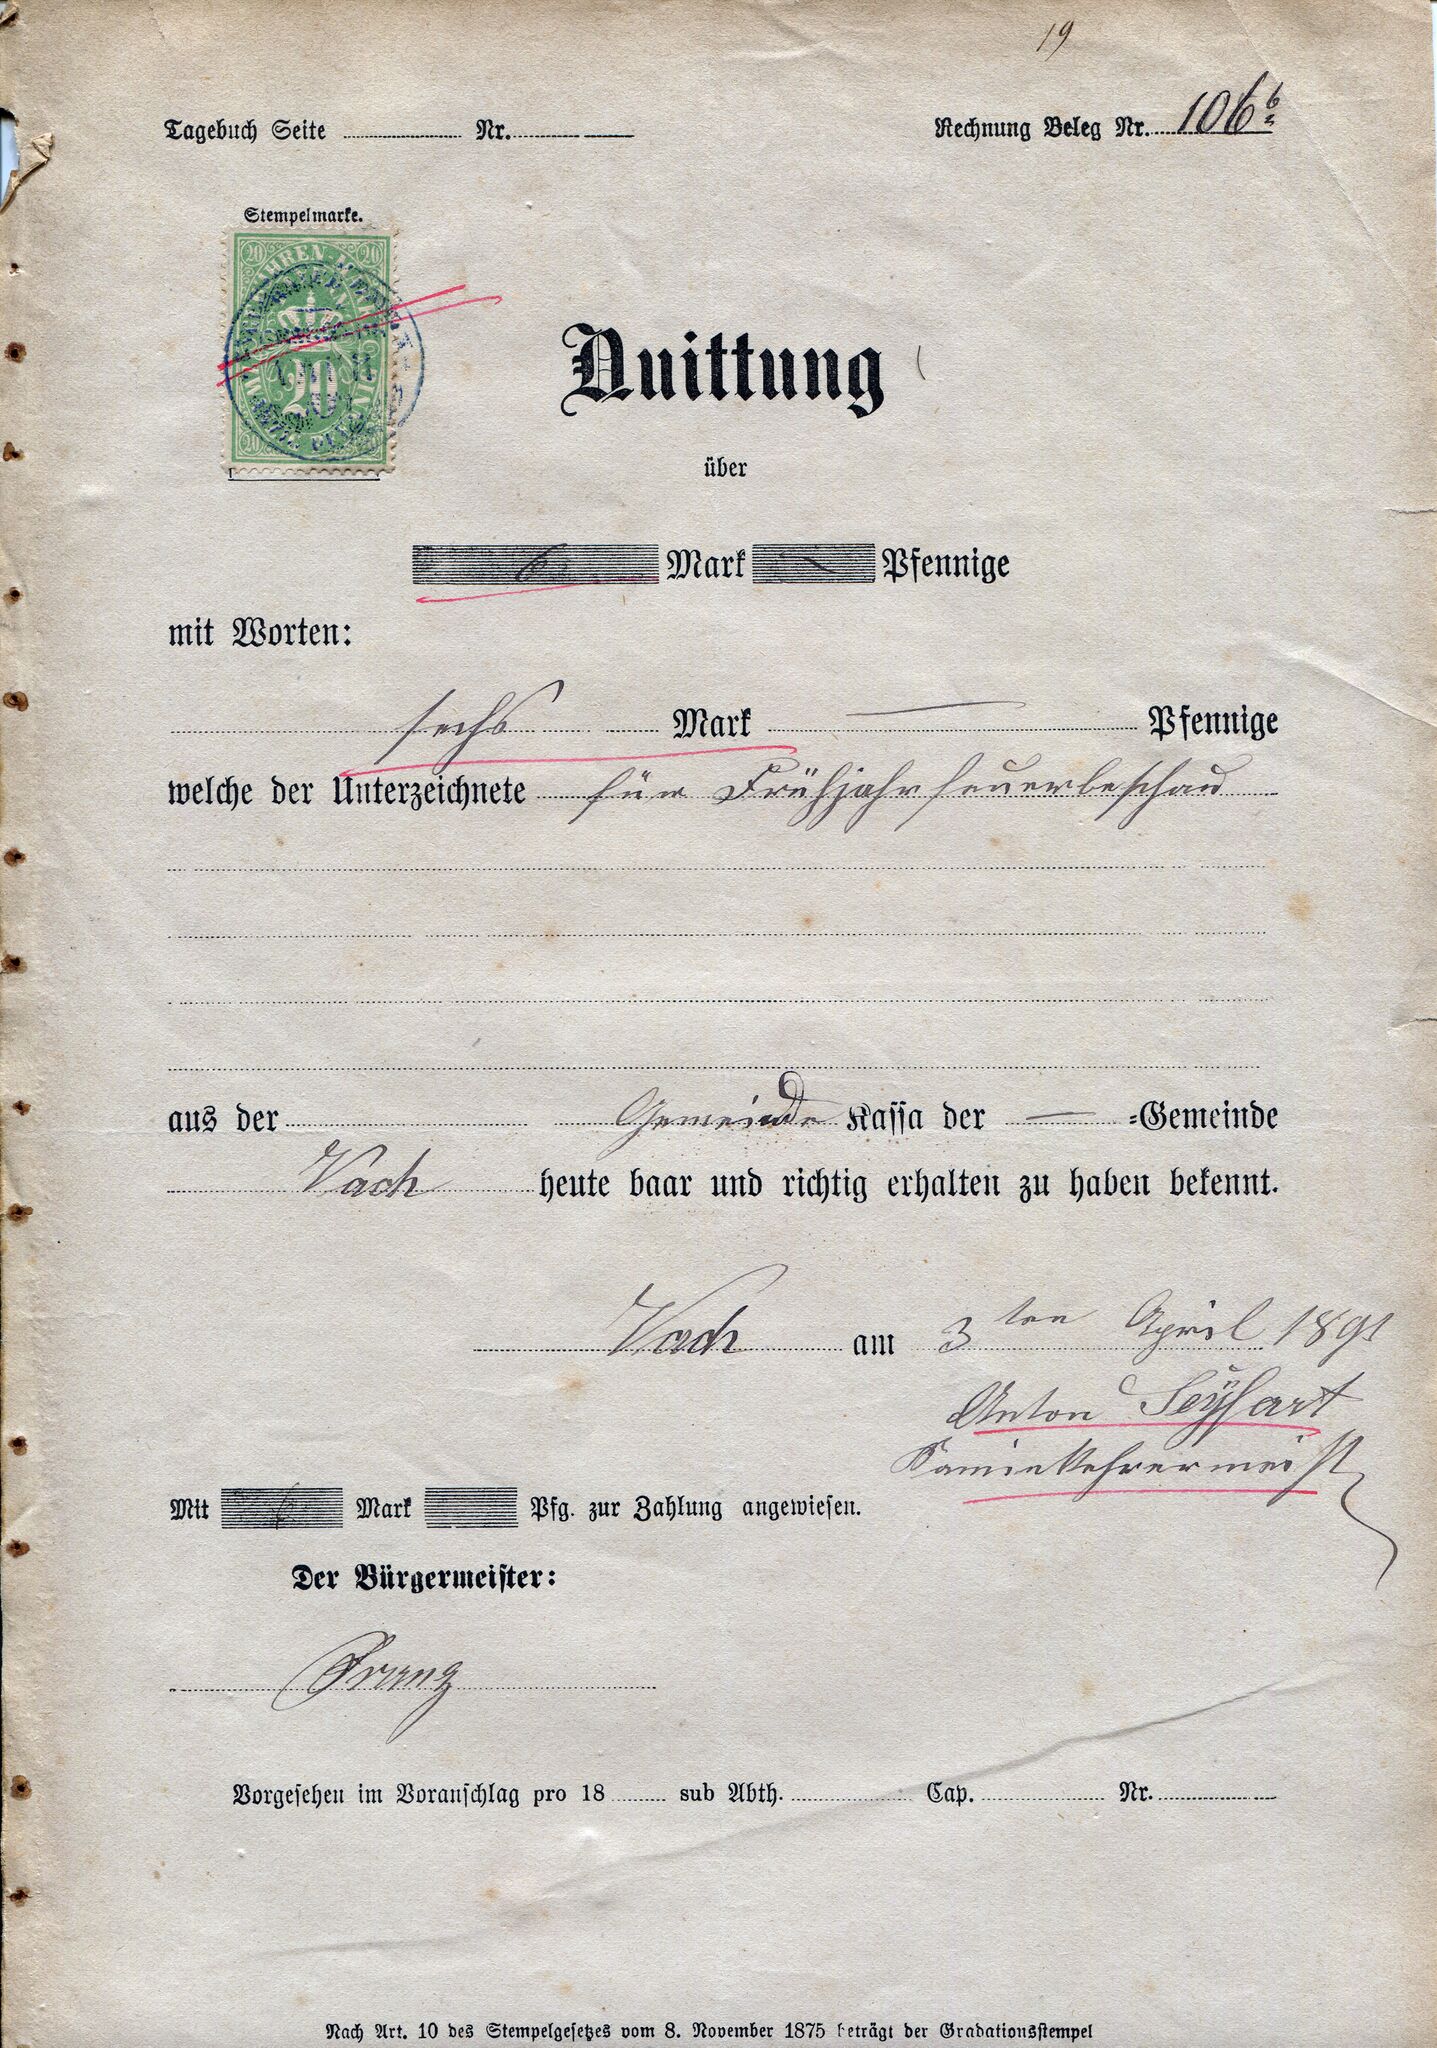 19
Tagebuch Seite Nr.
Rechnung Beleg Nr. 106 b
Stempelmarke.
20 20
20
20 20
Quittung
über
6 Mark — Pfennige
mit Worten:
sechs Mark — Pfennige
welche der Unterzeichnete für Frühjahrfeuerbeschau
aus der Gemeinde Kassa der — =Gemeinde
Vach heute baar und richtig erhalten zu haben bekennt.
Vach am 3ten April 1891
Anton Seyfart
Kaminkehrermeist
Mit 6 Mark Pfg. zur Zahlung angewiesen.
Der Bürgermeister:
Vorgesehen im Voranschlag pro 18 sub Abth. Cap. Nr.
Nach Art. 10 des Stempelgesetzes vom 8. November 1875 beträgt der Gradationsstempel